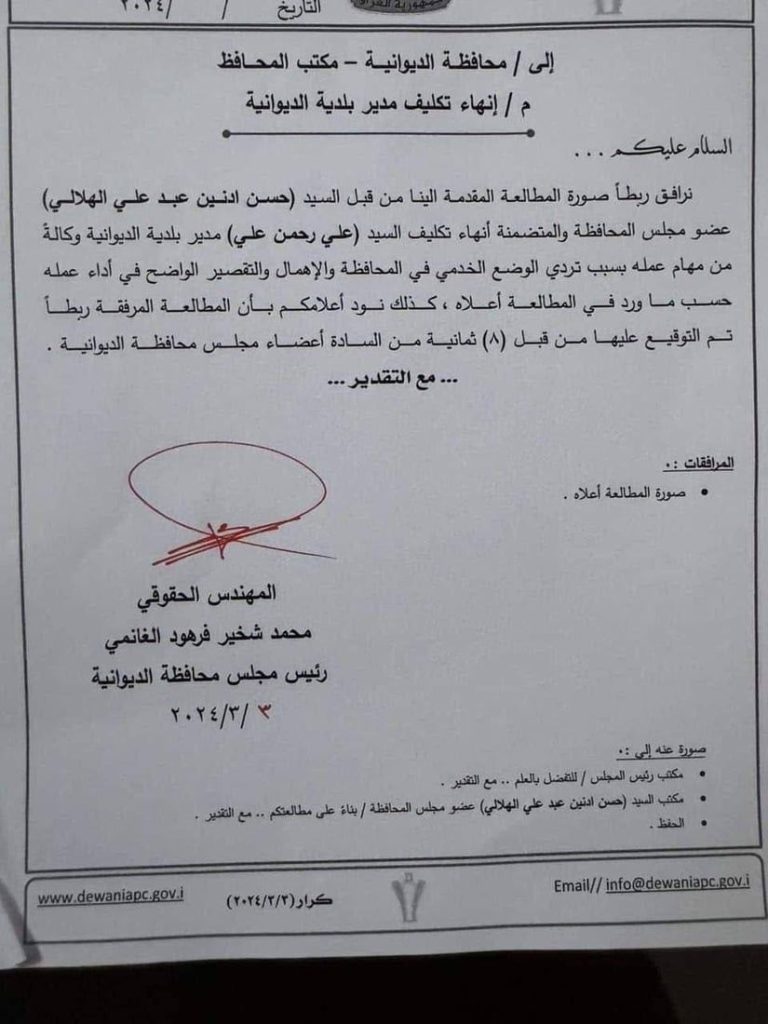 التاريخ / / ٢٠٢٤
جمهورية العراق
إلى / محافظة الديوانية – مكتب المحافظ
م / إنهاء تكليف مدير بلدية الديوانية
السلام عليكم ...
نرافق ربطاً صورة المطالعة المقدمة الينا من قبل السيد (حسن ادنين عبد علي الهلالي)
عضو مجلس المحافظة والمتضمنة أنهاء تكليف السيد (علي رحمن علي) مدير بلدية الديوانية وكالةً
من مهام عمله بسبب تردي الوضع الخدمي في المحافظة والإهمال والتقصير الواضح في أداء عمله
حسب ما ورد في المطالعة أعلاه ، كذلك نود أعلامكم بأن المطالعة المرفقة ربطاً
تم التوقيع عليها من قبل (٨) ثمانية من السادة أعضاء مجلس محافظة الديوانية .
... مع التقدير ...
المرافقات :٠
• صورة المطالعة أعلاه .
المهندس الحقوقي
محمد شخير فرهود الغانمي
رئيس مجلس محافظة الديوانية
٣ /٢٠٢٤/٣
صورة عنه إلى :٠
• مكتب رئيس المجلس / للتفضل بالعلم .. مع التقدير .
• مكتب السيد (حسن ادنين عبد علي الهلالي) عضو مجلس المحافظة / بناءً على مطالعتكم .. مع التقدير .
• الحفظ .
Email// info@dewaniapc.gov.i
كرار(٢٠٢٤/٣/٣)
www.dewaniapc.gov.i